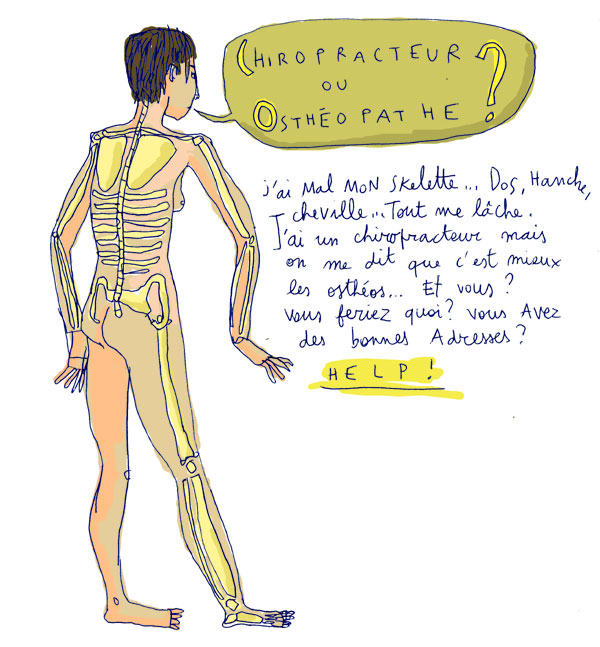 CHIROPRACTEUR
OU
OSTHÉOPATHE ?
j'ai mal mon skelette... Dos, Hanche,
cheville... Tout me lâche.
J'ai un chiropracteur mais
on me dit que c'est mieux
les osthéos... Et vous ?
vous feriez quoi ? vous avez
des bonnes Adresses ?
HELP !